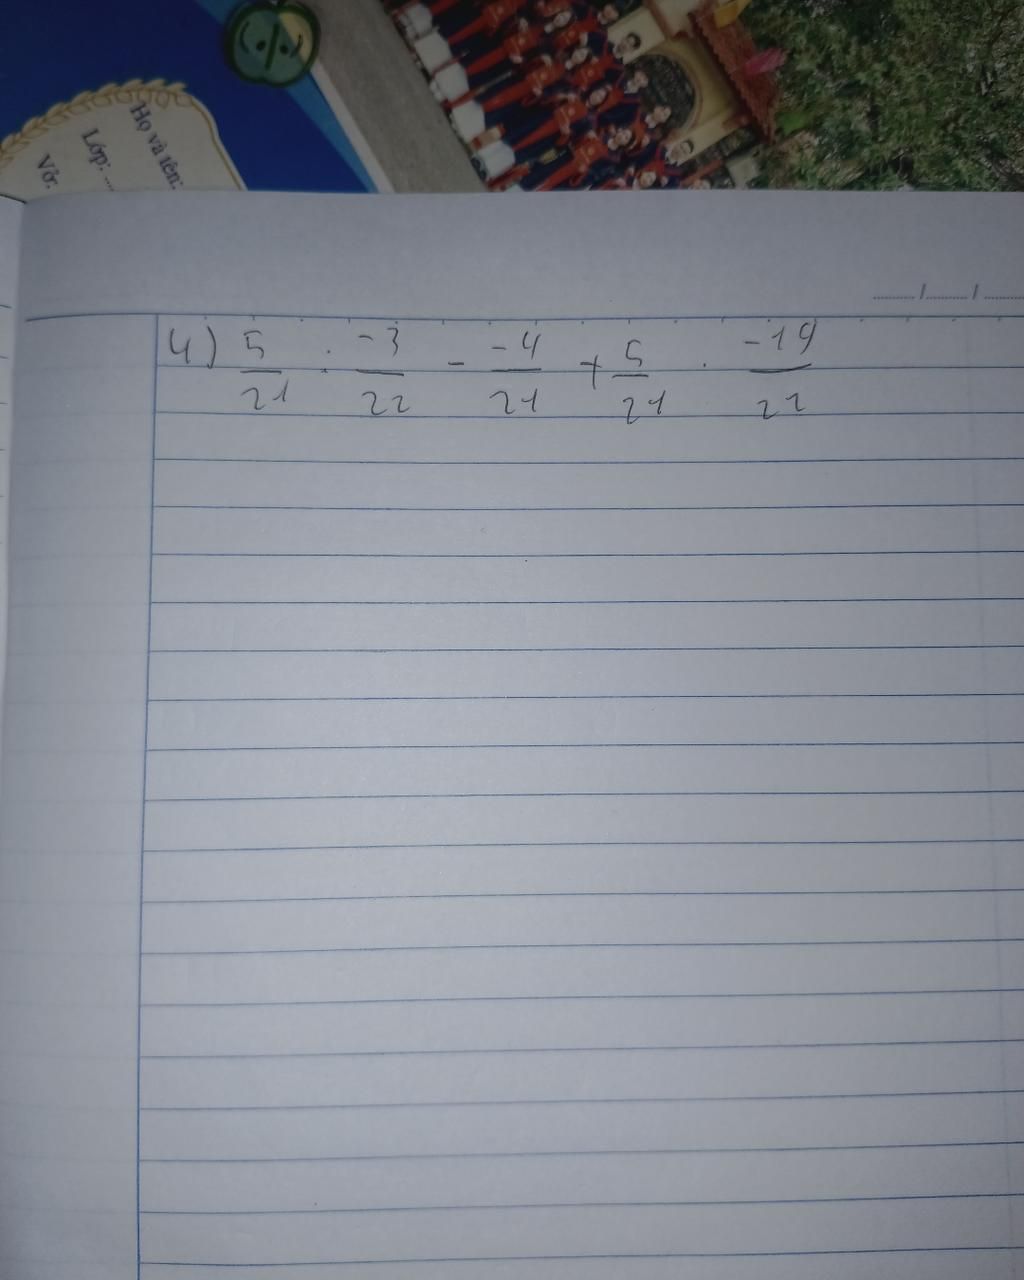 Họ và tên:
Lớp: ....
Vở:
......../......../........
4) 5/21 . -3/22 - -4/21 + 5/21 . -19/22